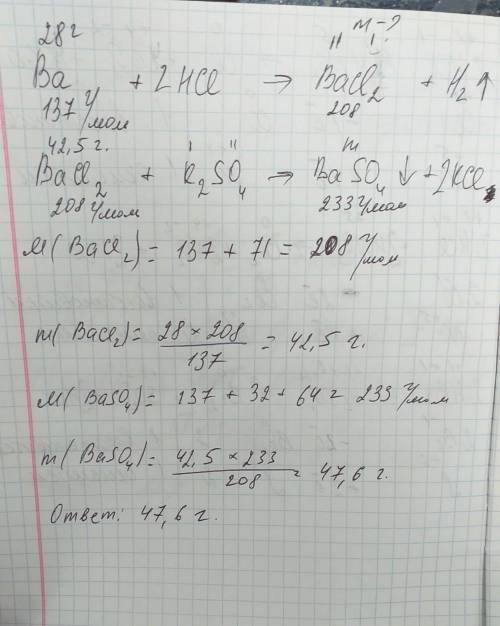 28 г m-?
Ba + 2HCl → BaCl₂ + H₂↑
137 г/мол 208
42,5 г. m
BaCl₂ + K₂SO₄ → BaSO₄↓ + 2KCl
208 г/мол 233 г/мол
M(BaCl₂) = 137 + 71 = 208 г/мол
m(BaCl₂) = 28 × 208 / 137 = 42,5 г.
M(BaSO₄) = 137 + 32 + 64 = 233 г/мол
m(BaSO₄) = 42,5 × 233 / 208 = 47,6 г.
Ответ: 47,6 г.